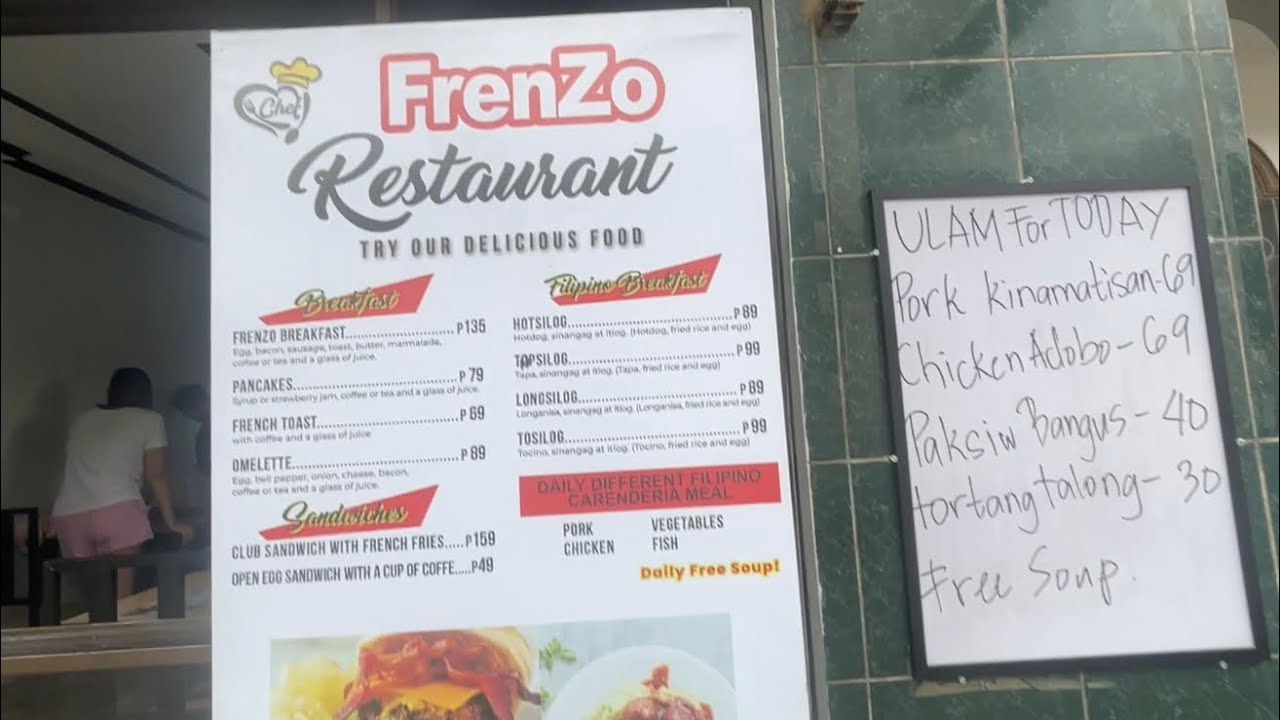 Chef
FrenZo
Restaurant
TRY OUR DELICIOUS FOOD
Breakfast
FRENZO BREAKFAST..........................₱135
Egg, bacon, sausage, toast, butter, marmalade,
coffee or tea and a glass of juice.
PANCAKES.......................................₱ 79
Syrup or strawberry jam, coffee or tea and a glass of juice.
FRENCH TOAST.................................₱ 69
with coffee and a glass of juice
OMELETTE.......................................₱ 89
Egg, bell pepper, onion, cheese, bacon,
coffee or tea and a glass of juice.
Sandwiches
CLUB SANDWICH WITH FRENCH FRIES.....₱159
OPEN EGG SANDWICH WITH A CUP OF COFFE.....₱49
Filipino Breakfast
HOTSILOG........................................₱ 89
Hotdog, sinangag at itlog. (Hotdog, fried rice and egg)
TAPSILOG........................................₱ 99
Tapa, sinangag at itlog. (Tapa, fried rice and egg)
LONGSILOG......................................₱ 89
Longanisa, sinangag at itlog. (Longanisa, fried rice and egg)
TOSILOG.........................................₱ 99
Tocino, sinangag at itlog. (Tocino, fried rice and egg)
DAILY DIFFERENT FILIPINO
CARENDERIA MEAL
PORK VEGETABLES
CHICKEN FISH
Daily Free Soup!
ULAM For TODAY
Pork kinamatisan-69
Chicken Adobo-69
Paksiw Bangus-40
tortang talong-30
Free Soup.